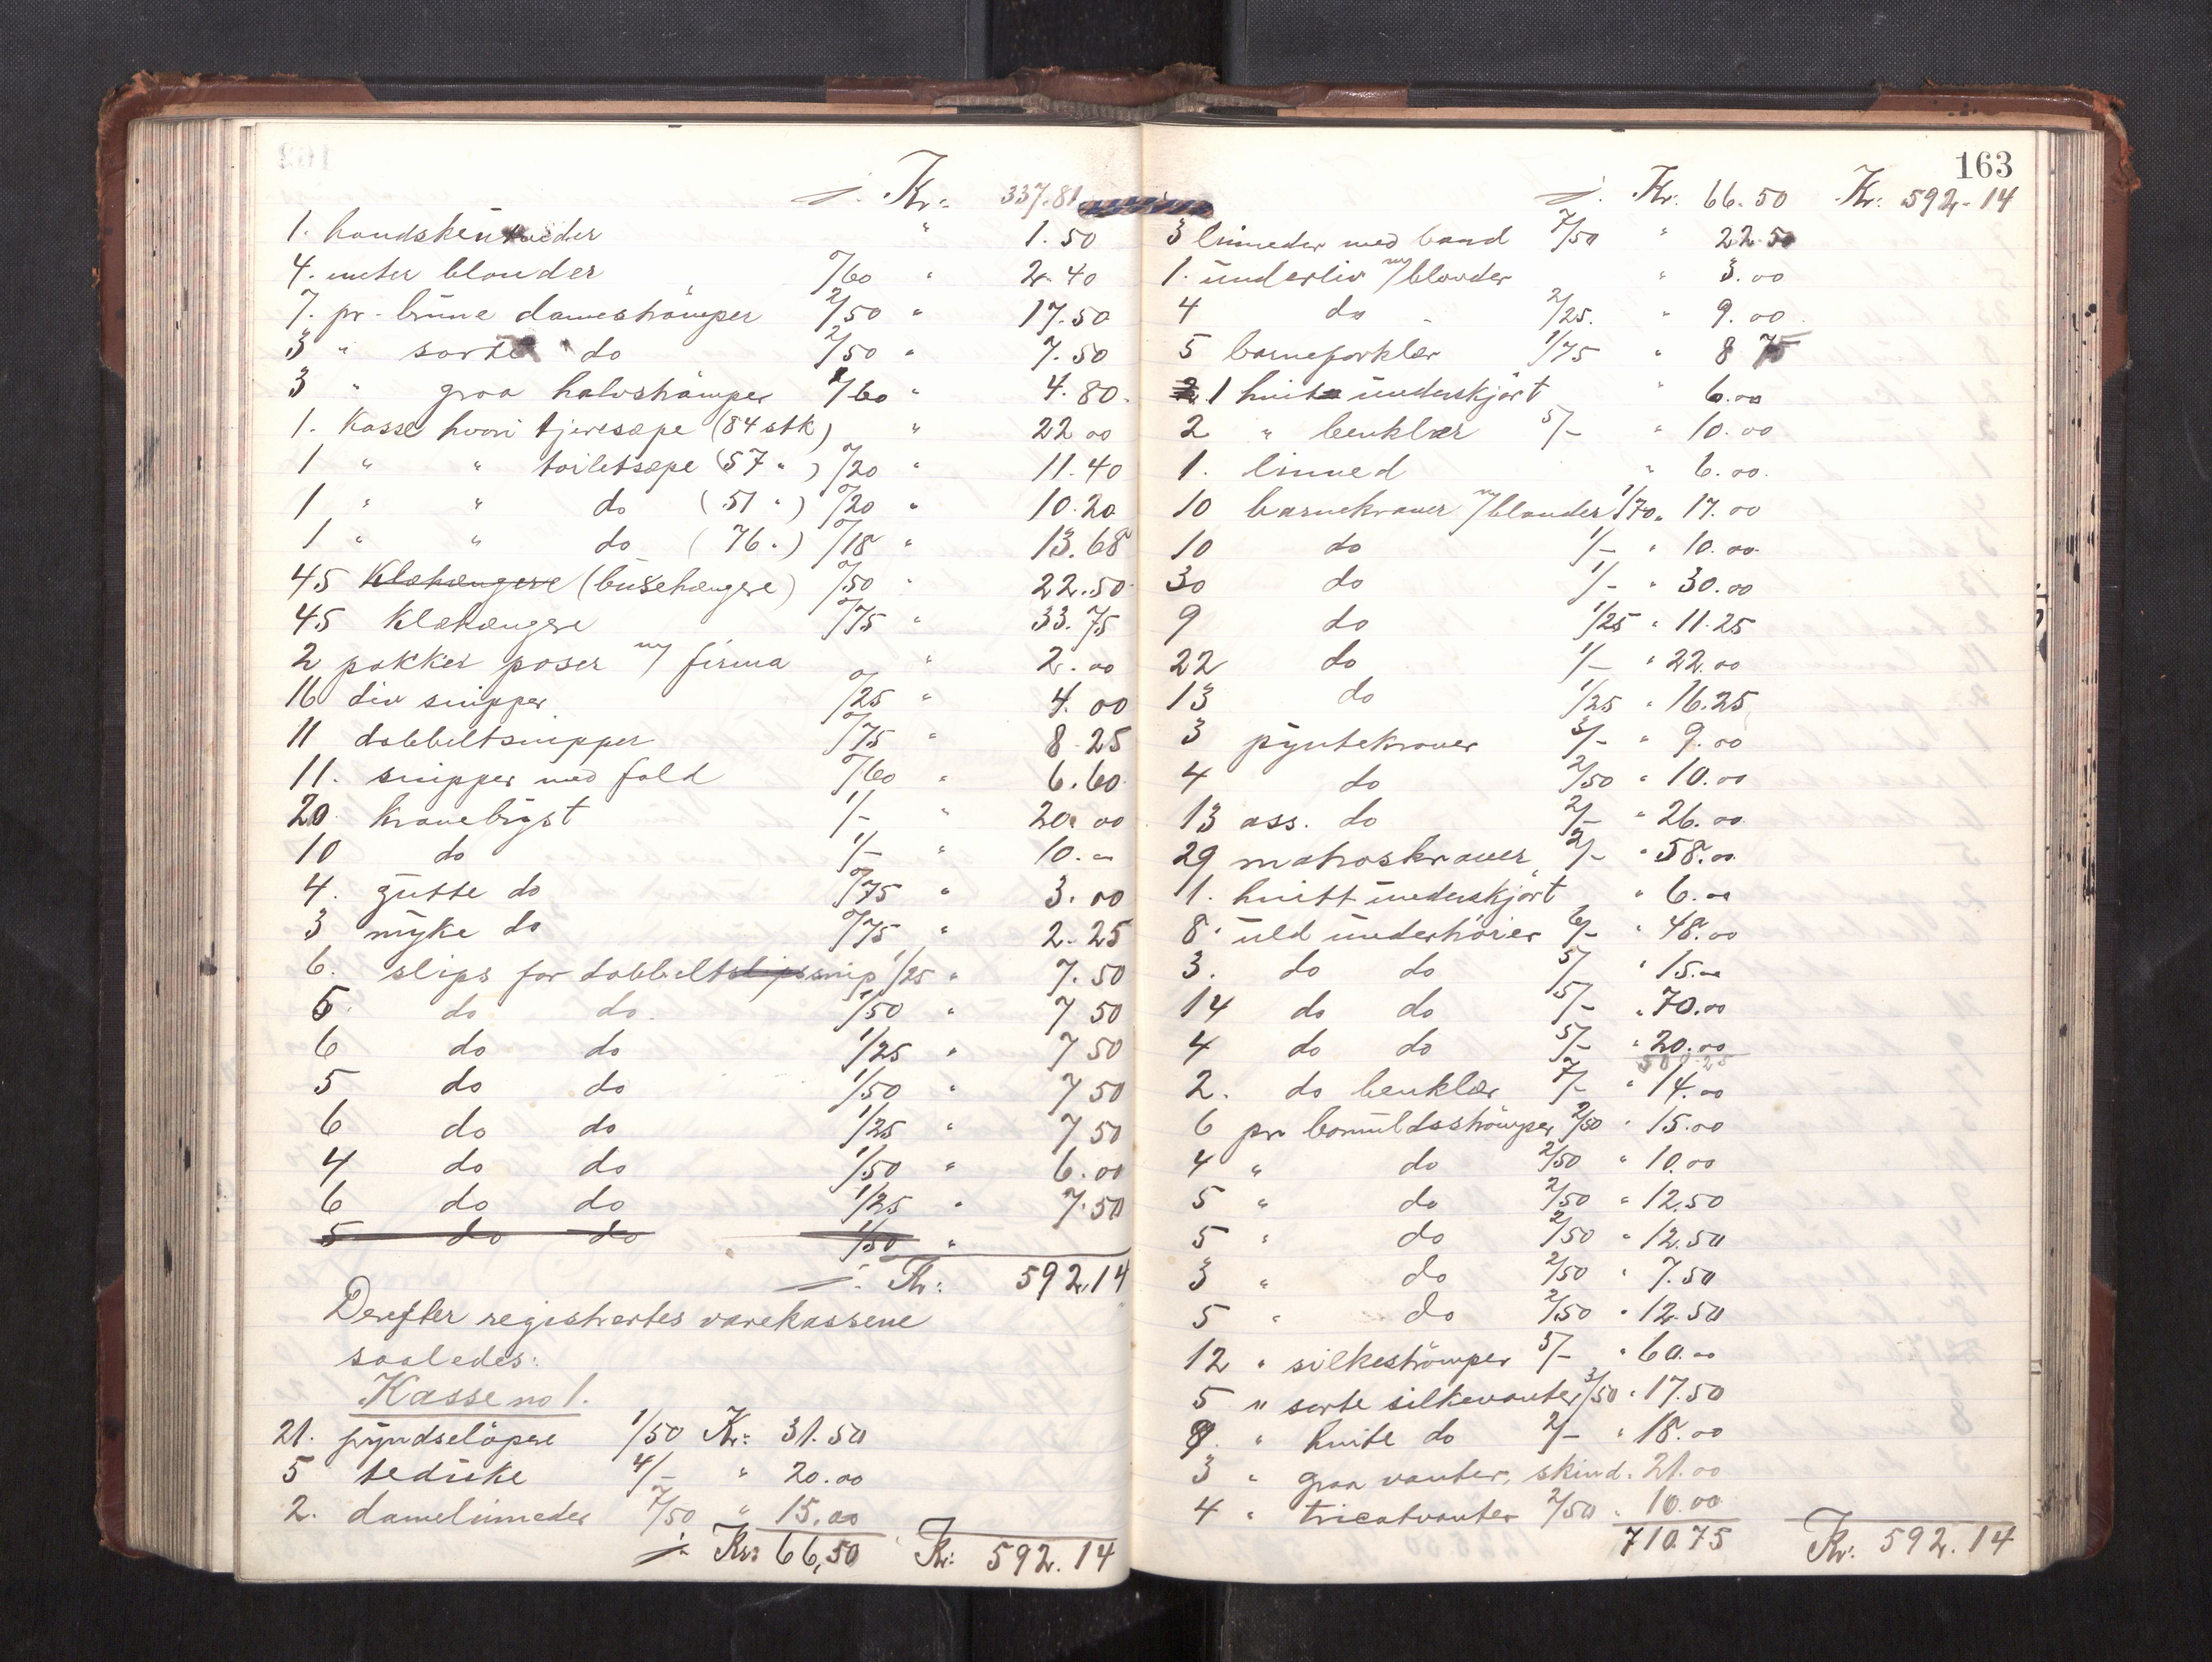 ÷ Kr: 337.81
1. handskeu
4. meter blonder 0/60 " 2.40
7. pr. brune dameströmper 2/50 " 17.50
3 " sorte do 2/50 " 7.50
3 " graa halvströmper 1/60 " 4.80
1. Kasse hvori tjeresæpe (84 stk) " 22 00
1 " " toiletsæpe (57 " ) 0/20 " 11.40
1 " " do (51 " ) 0/20 " 10.20
1 " " do (76 " ) 0/18 " 13.68
45 Klæhængere (buksehængere) 0/50 " 22.50
45 Klæhængere 0/75 " 33.75
2 pakker poser m/ firma " 2.00
16 div snipper 0/25 " 4.00
11 dobbeltsnipper 0/75 " 8.25
11. snipper med fald 0/60 " 6.60
20 kravebryst 1/- " 20.00
10 do 1/- " 10.-
4. gutte do 0/75 " 3.00
3 myke do 0/75 " 2.25
6. slips for dobbeltslipssnip 1/25 " 7.50
5 do do 1/50 " 7 50
6 do do 1/25 " 7 50
5 do do 1/50 " 7 50
6 do do 1/25 " 7 50
4 do do 1/50 " 6.00
6 do do 1/25 " 7.50
5 do do 1/50 "
÷ Kr: 592.14
Derefter registrertes varekassene
saaledes:
Kasse no 1.
21. pyndseløpere 1/50 Kr: 31.50
5 teduke 4/- " 20.00
2. damelinneder 7/50 " 15.00
÷ Kr: 66,50 Kr: 592.14
163
÷ Kr: 66.50 Kr: 592.14
3 linneder med baand 7/50 " 22.50
1. underliv m/blonder " 3.00
4 do 2/25. " 9.00
5 barneforklær 1/75 " 8 75
1 hvit underskjört " 6.00
2 " benklær 5/- " 10.00
1. linned " 6.00
10 barnekraver m/blonder 1/70 " 17.00
10 do 1/- " 10.00
30 do 1/- " 30.00
9 do 1/25 " 11.25
22 do 1/- " 22.00
13 do 1/25 " 16.25
3 pyntekraver 3/- " 9.00
4 do 2/50 " 10.00
13 ass. do 2/- " 26.00
29 matroskraver 2/- " 58.00
1. hvitt underskjört " 6.00
8 uld undertröier 6/- " 48.00
3. do do 5/ " 15.00
14 do do 5/- " 70.00
4 do do 5/- " 20.00
508.25
2. do benklær 7/- " 14.00
6 pr bomuldsströmper 2/50 " 15.00
4 " do 2/50 " 10.00
5 " do 2/50 " 12.50
5 " do 2/50 " 12.50
3 " do 2/50 " 7.50
5 " do 2/50 " 12.50
12 " silkeströmper 5/- " 60.00
5 " sorte silkevanter 3/50 " 17.50
9. " hvite do 2/- " 18.00
3 " graa vanter, skind " 21.00
4 " tricotvanter 2/50 " 10.00
710.75 Kr: 592.14